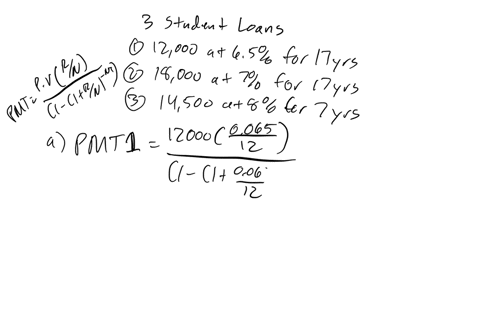 3 Student Loans
① 12,000 at 6.5% for 17yrs
② 18,000 at 7% for 17yrs
③ 14,500 at 8% for 7yrs
PMT = P.V(R/N) / (1-(1+R/N)^-NT)
a) PMT1 = 12000(0.065/12) / (1-(1+0.06/12